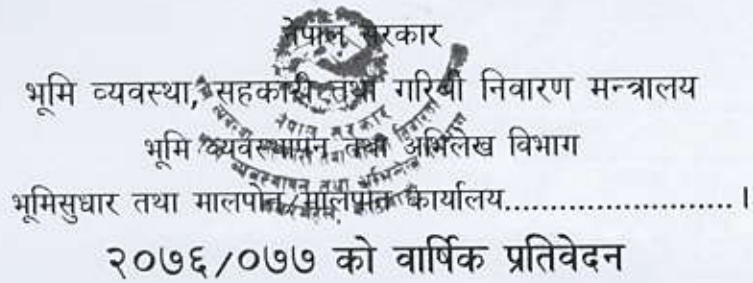 नेपाल सरकार
भूमि व्यवस्था, सहकारी तथा गरिबी निवारण मन्त्रालय
भूमि व्यवस्थापन तथा अभिलेख विभाग
भूमिसुधार तथा मालपोत/मालपोत कार्यालय........................।
२०७६/०७७ को वार्षिक प्रतिवेदन